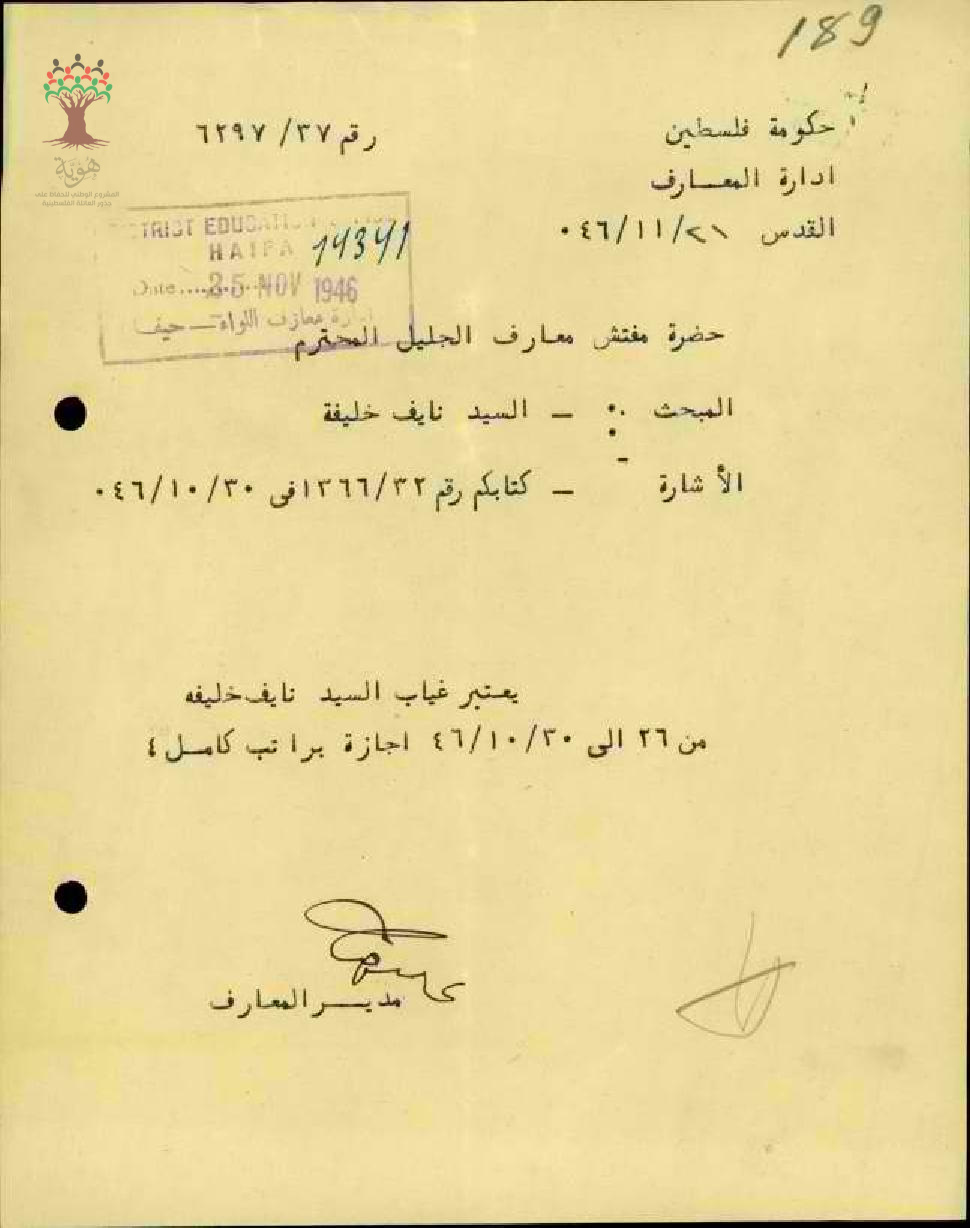 189
حكومة فلسطين
رقم ٣٧/ ٦٢٩٧
ادارة المعارف
القدس ٢١/١١/٠٤٦
هوية
المشروع الوطني للحفاظ على
جذور العائلة الفلسطينية
DISTRICT EDUCATION
HAIFA 14341
Date 25 NOV 1946
ادارة معارف اللواء — حيفا
حضرة مفتش معارف الجليل المحترم
المبحث :. — السيد نايف خليفة
الأشارة — كتابكم رقم ١٣٦٦/٣٢ فى ٠٤٦/١٠/٣٠
يعتبر غياب السيد نايف خليفه
من ٢٦ الى ٤٦/١٠/٣٠ اجازة براتب كامل ٤
مديـر المعارف